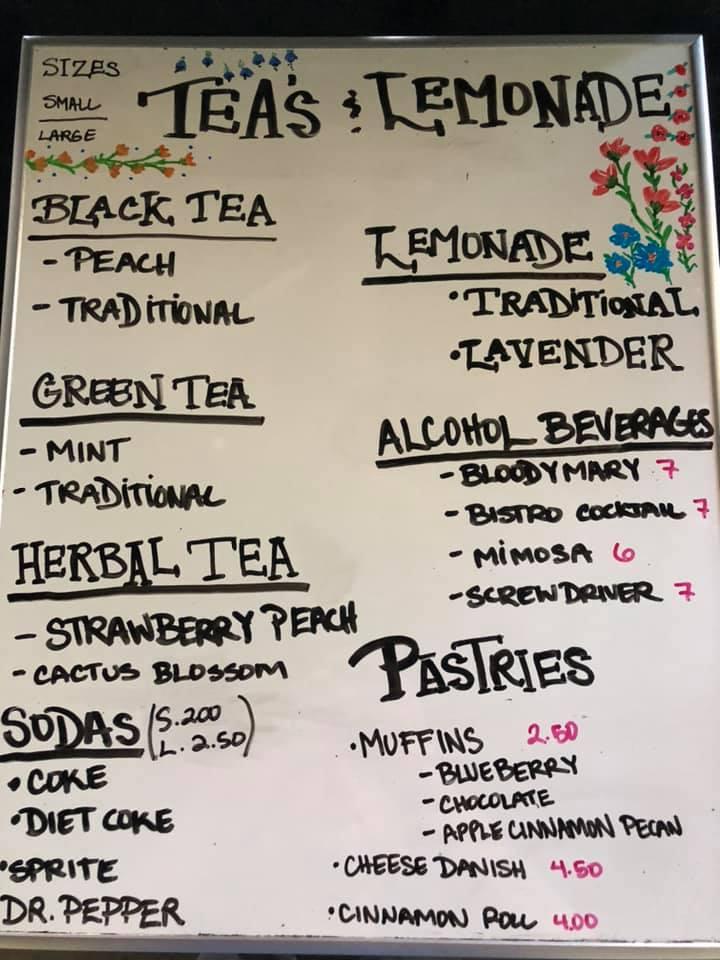 SIZES
SMALL
LARGE
TEA'S & LEMONADE
BLACK TEA
- PEACH
- TRADITIONAL
GREEN TEA
- MINT
- TRADITIONAL
HERBAL TEA
- STRAWBERRY PEACH
- CACTUS BLOSSOM
SODAS (S. 200
L. 2.50)
• COKE
• DIET COKE
• SPRITE
DR. PEPPER
LEMONADE
• TRADITIONAL
• LAVENDER
ALCOHOL BEVERAGES
- BLOODY MARY 7
- BISTRO COCKTAIL 7
- MIMOSA 6
- SCREWDRIVER 7
PASTRIES
• MUFFINS 2.50
- BLUEBERRY
- CHOCOLATE
- APPLE CINNAMON PECAN
• CHEESE DANISH 4.50
• CINNAMON ROLL 4.00